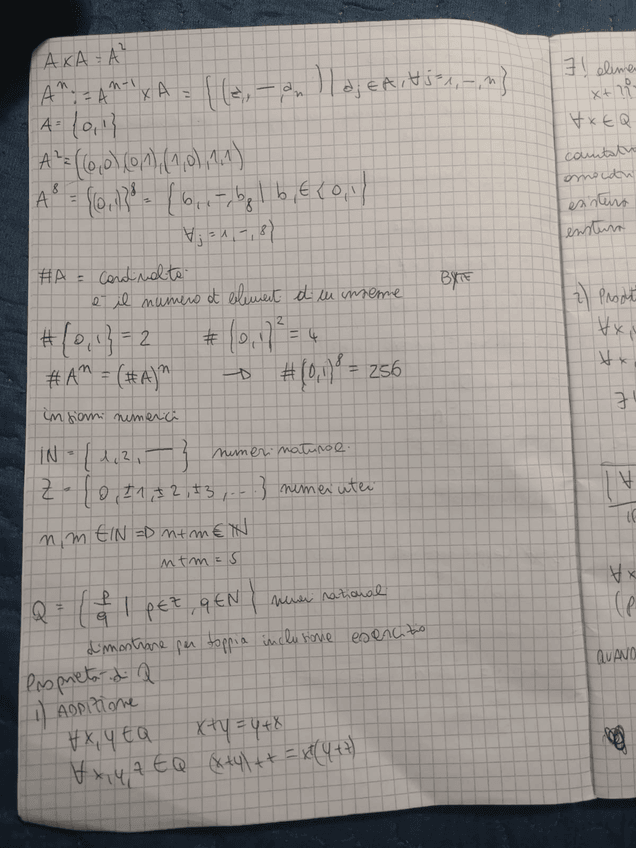 A×A = A²
Aⁿ := Aⁿ⁻¹ × A = {(a₁, —, aₙ) | aⱼ ∈ A, ∀j=1, –, n}
A = {0,1}
A² = ((0,0)(0,1),(1,0),1,1)
A⁸ = {(0,1)}⁸ = { b₁, –, b₈ | bⱼ ∈ {0,1}
∀j = 1, –, 8}
#A = cardinalità
è il numero d element d un insieme BYTE
#{0,1} = 2 #{0,1}² = 4
#Aⁿ = (#A)ⁿ → #{0,1}⁸ = 256
insiemi numerici
IN = {1,2, —} numeri naturali
Z = {0, ±1, ±2, ±3, ...} numeri interi
n, m ∈ IN ⇒ n+m ∈ IN
n+m = s
Q = { p/q | p∈Z, q∈N } numeri razionali
dimostrare per doppia inclusione esercizio
Proprietà d Q
1) ADDIZIONE
∀x,y ∈ Q x+y = y+x
∀x,y,z ∈ Q (x+y)+z = x+(y+z)
∃! eleme
x+
∀x ∈ Q
esistenza
2) Prodo
∀x,
∀x,
∃!
∀x
(p
QUAND